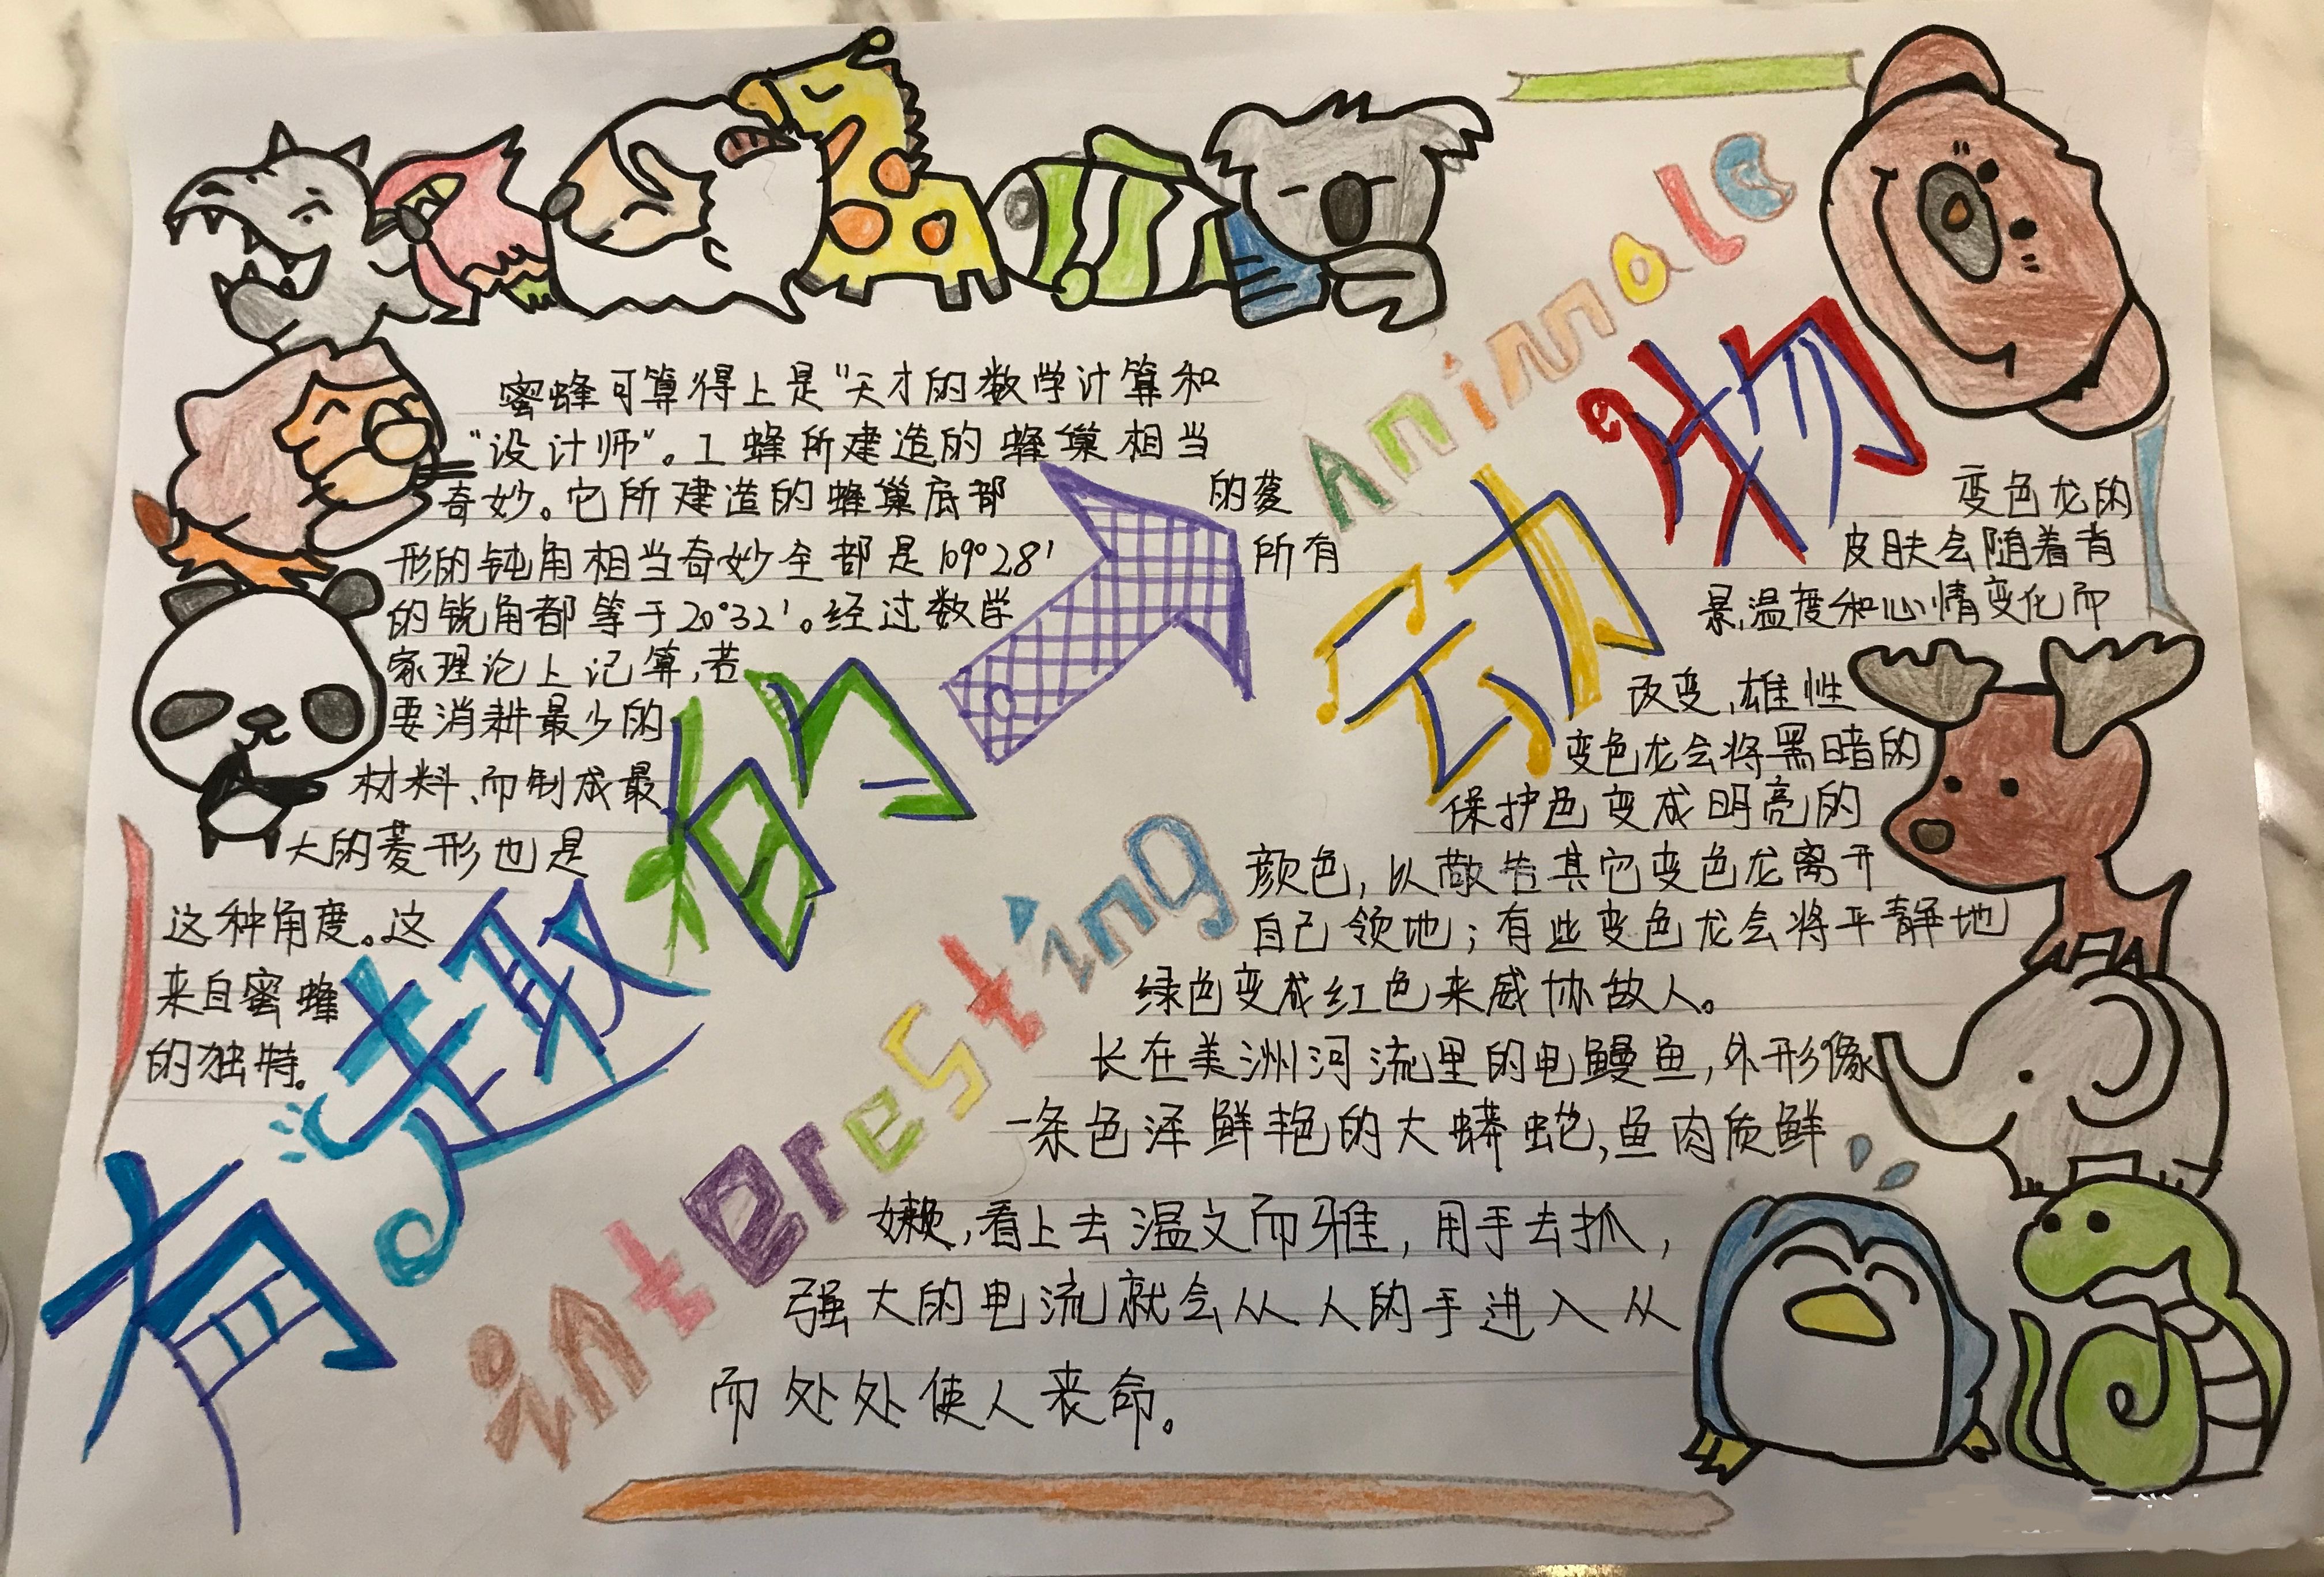 有趣的动物
interesting Animals
蜜蜂可算得上是“天才的数学计算和
“设计师”。工蜂所建造的蜂巢相当
奇妙。它所建造的蜂巢底部 的菱
形的钝角相当奇妙全部是109°28' 所有
的锐角都等于20°32'。经过数学
家理论上记算,若
要消耕最少的
材料、而制成最
大的菱形也是
这种角度。这
来自蜜蜂
的独特。
变色龙的
皮肤会随着背
景,温度和心情变化而
改变,雄性
变色龙会将黑暗的
保护色变成明亮的
颜色,以敬告其它变色龙离开
自己领地;有些变色龙会将平静地
绿色变成红色来威协敌人。
长在美洲河流里的电鳗鱼,外形像
一条色泽鲜艳的大蟒蛇,鱼肉质鲜
嫩,看上去温文而雅,用手去抓,
强大的电流就会从人的手进入从
而处处使人丧命。